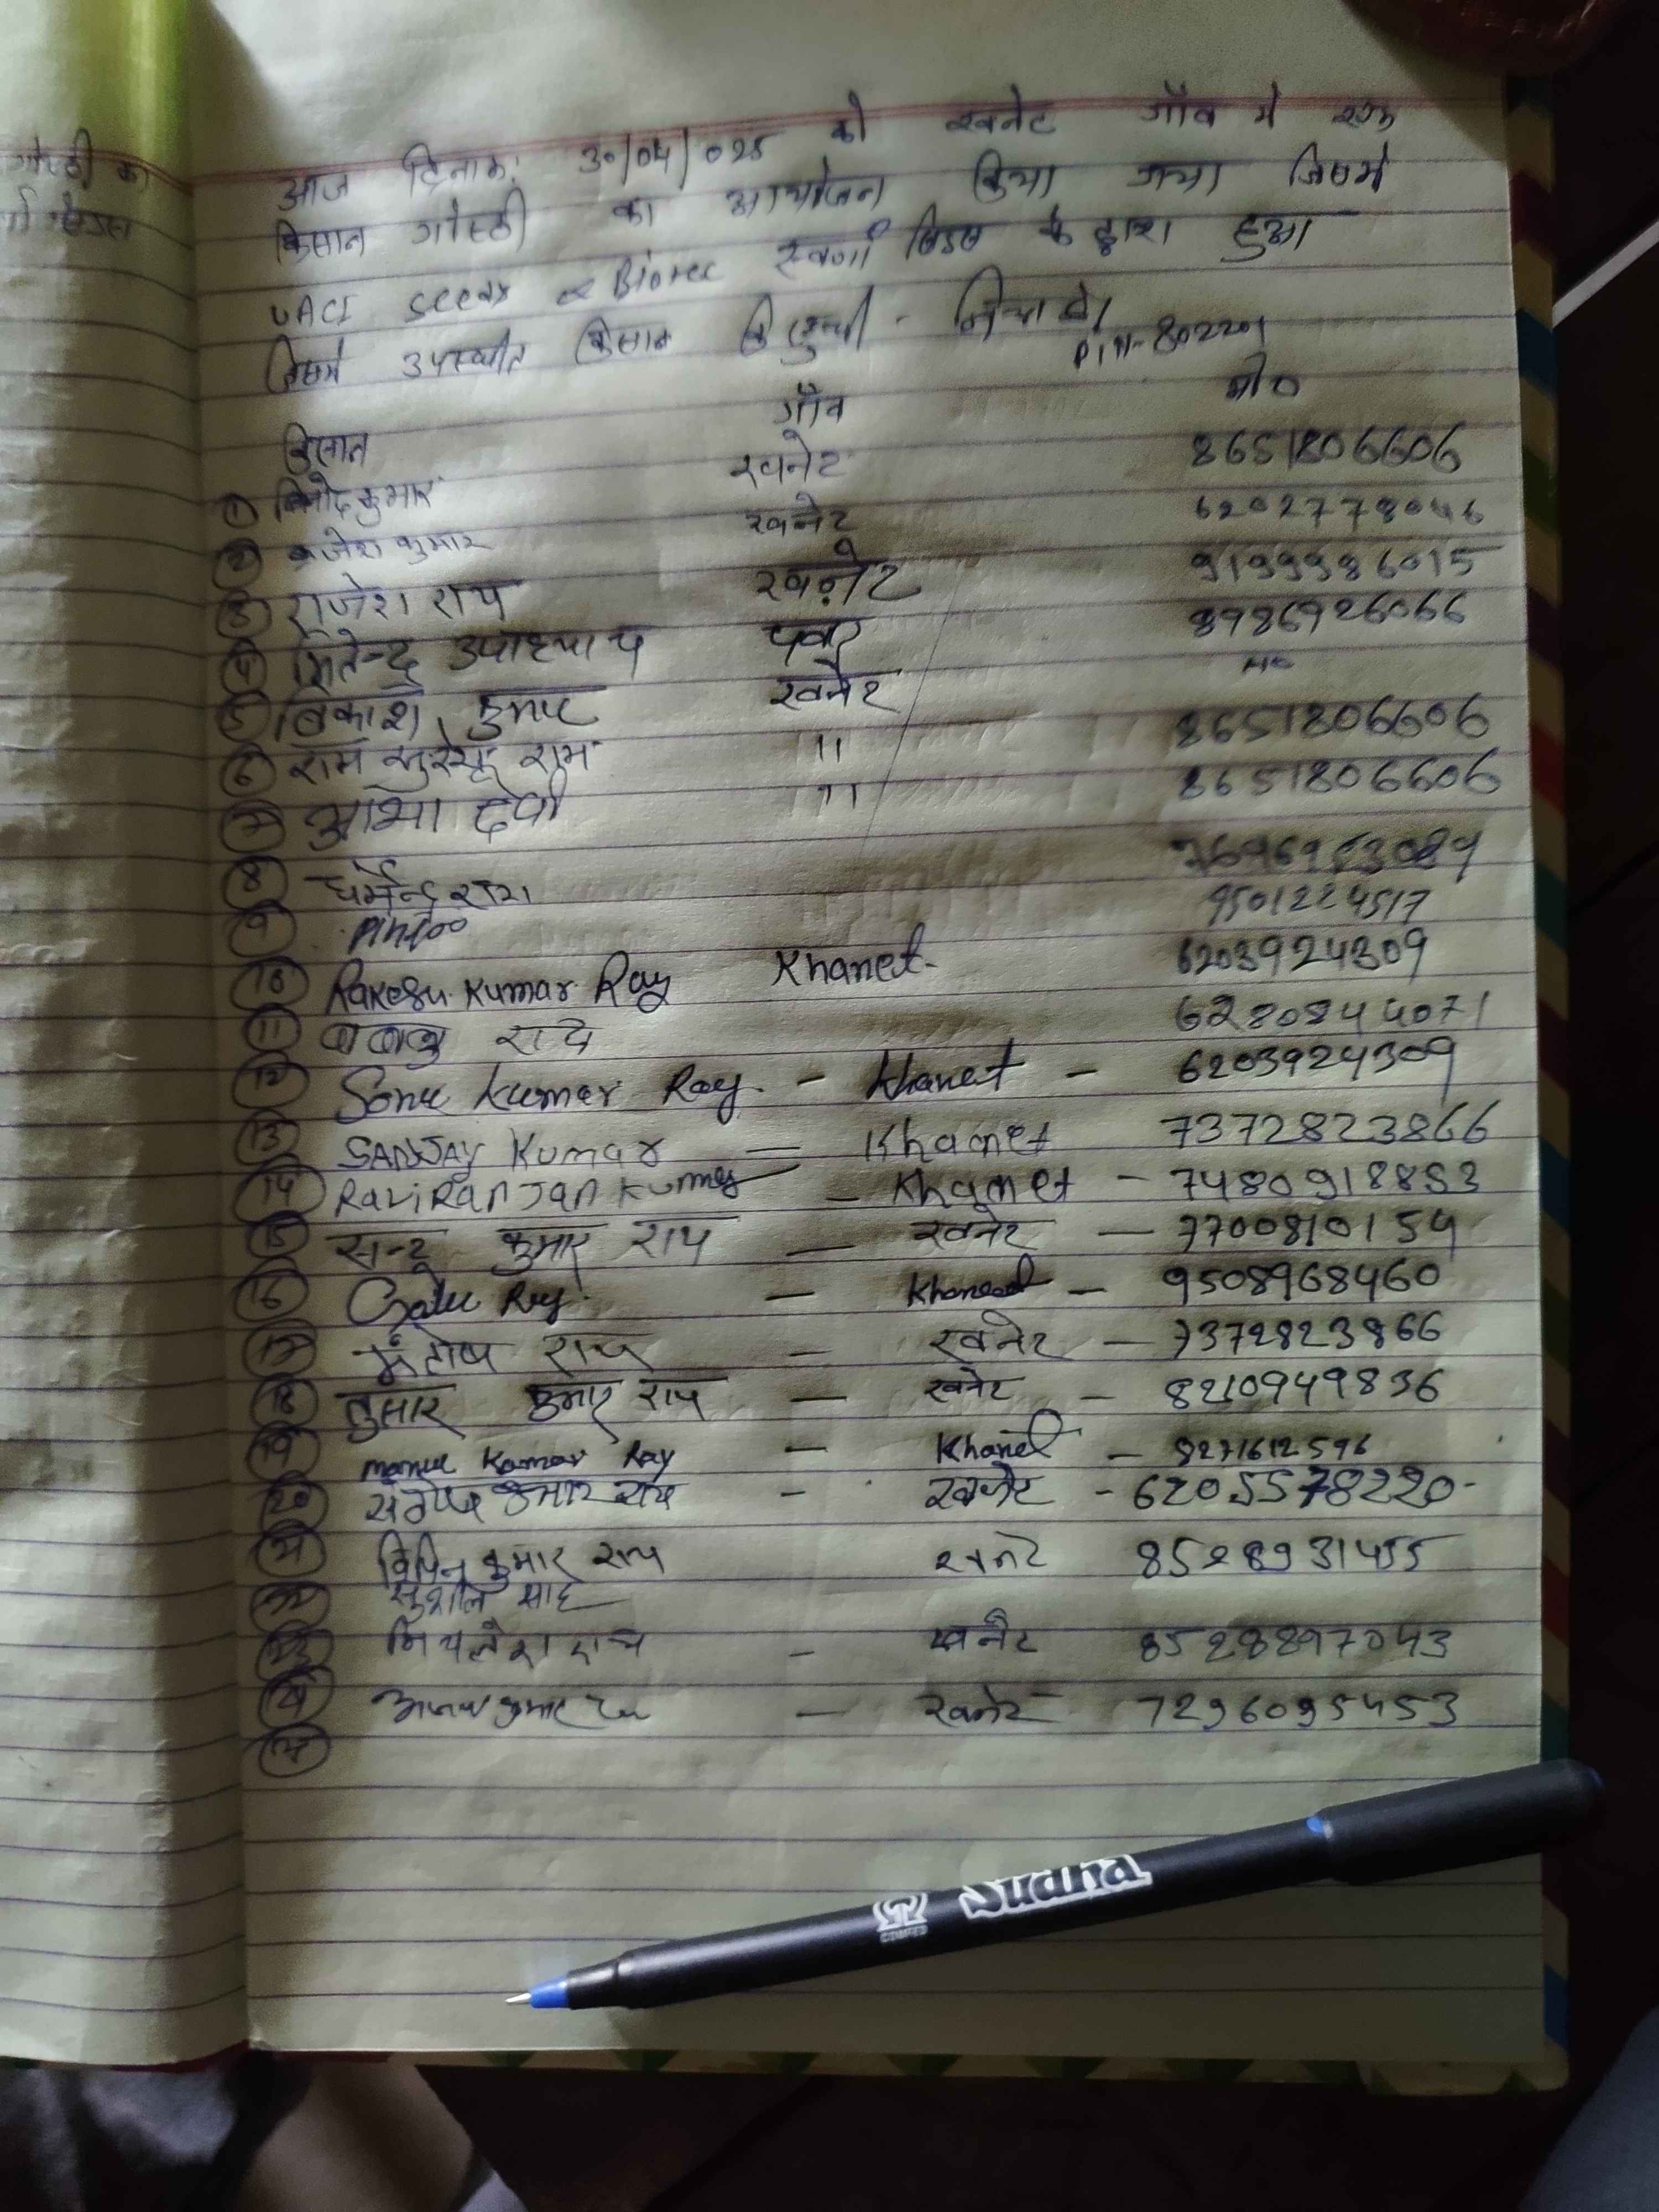 गोस्ठी का
आज दिनाक: 30/04/025 को खनेट गाँव मे एक
किसान गोस्ठी का आयोजन किया गया जिसमे
UACI Seeds & Biotec स्वर्णा सिडस के द्वारा हुआ
जिसमे उपस्थीत किसान कि सुची - निचे है।
PIN-802201
किसान गाँव मो०
① विनोद कुमार खनेट 8651806606
② ब्रजेश कुमार खनेट 6202778046
③ राजेश राय खनेट 9199986015
④ जितेन्द्र उपाध्याय पवार 8986926066
⑤ विकाश कुमार खनेट
⑥ राम सुरेश राम 11 8651806606
⑦ आभा देवी 11 8651806606
⑧ धर्मेन्द्र राय 7696963089
⑨ Pintoo 9501224517
⑩ Rakesh Kumar Ray Khanet 6203924309
⑪ बबलु राय 6280844071
⑫ Sonu Kumar Ray - Khanet - 6203924309
⑬ SANJAY Kumar — Khanet 7372823866
⑭ RaviRanJan Kumar - Khanet - 7480918853
⑮ सन्टू कुमार राय — खनेट — 7700810154
⑯ Ray — Khaneet - 9508968460
⑰ मंतोष राय — खनेट — 7372823866
⑱ तुसार कुमार राय — खनेट - 8210949836
⑲ monu Kumar Ray — Khanet - 8271612596
⑳ संतोष कुमार राय - खनेट - 6205578220
21 विपिन कुमार राय खनेट 8528931455
22 सुशील साह
23 मिथलेश राय - खनेट 8528897043
24 अजय कुमार राय — खनेट 7296095453
25
COMFED Sudha